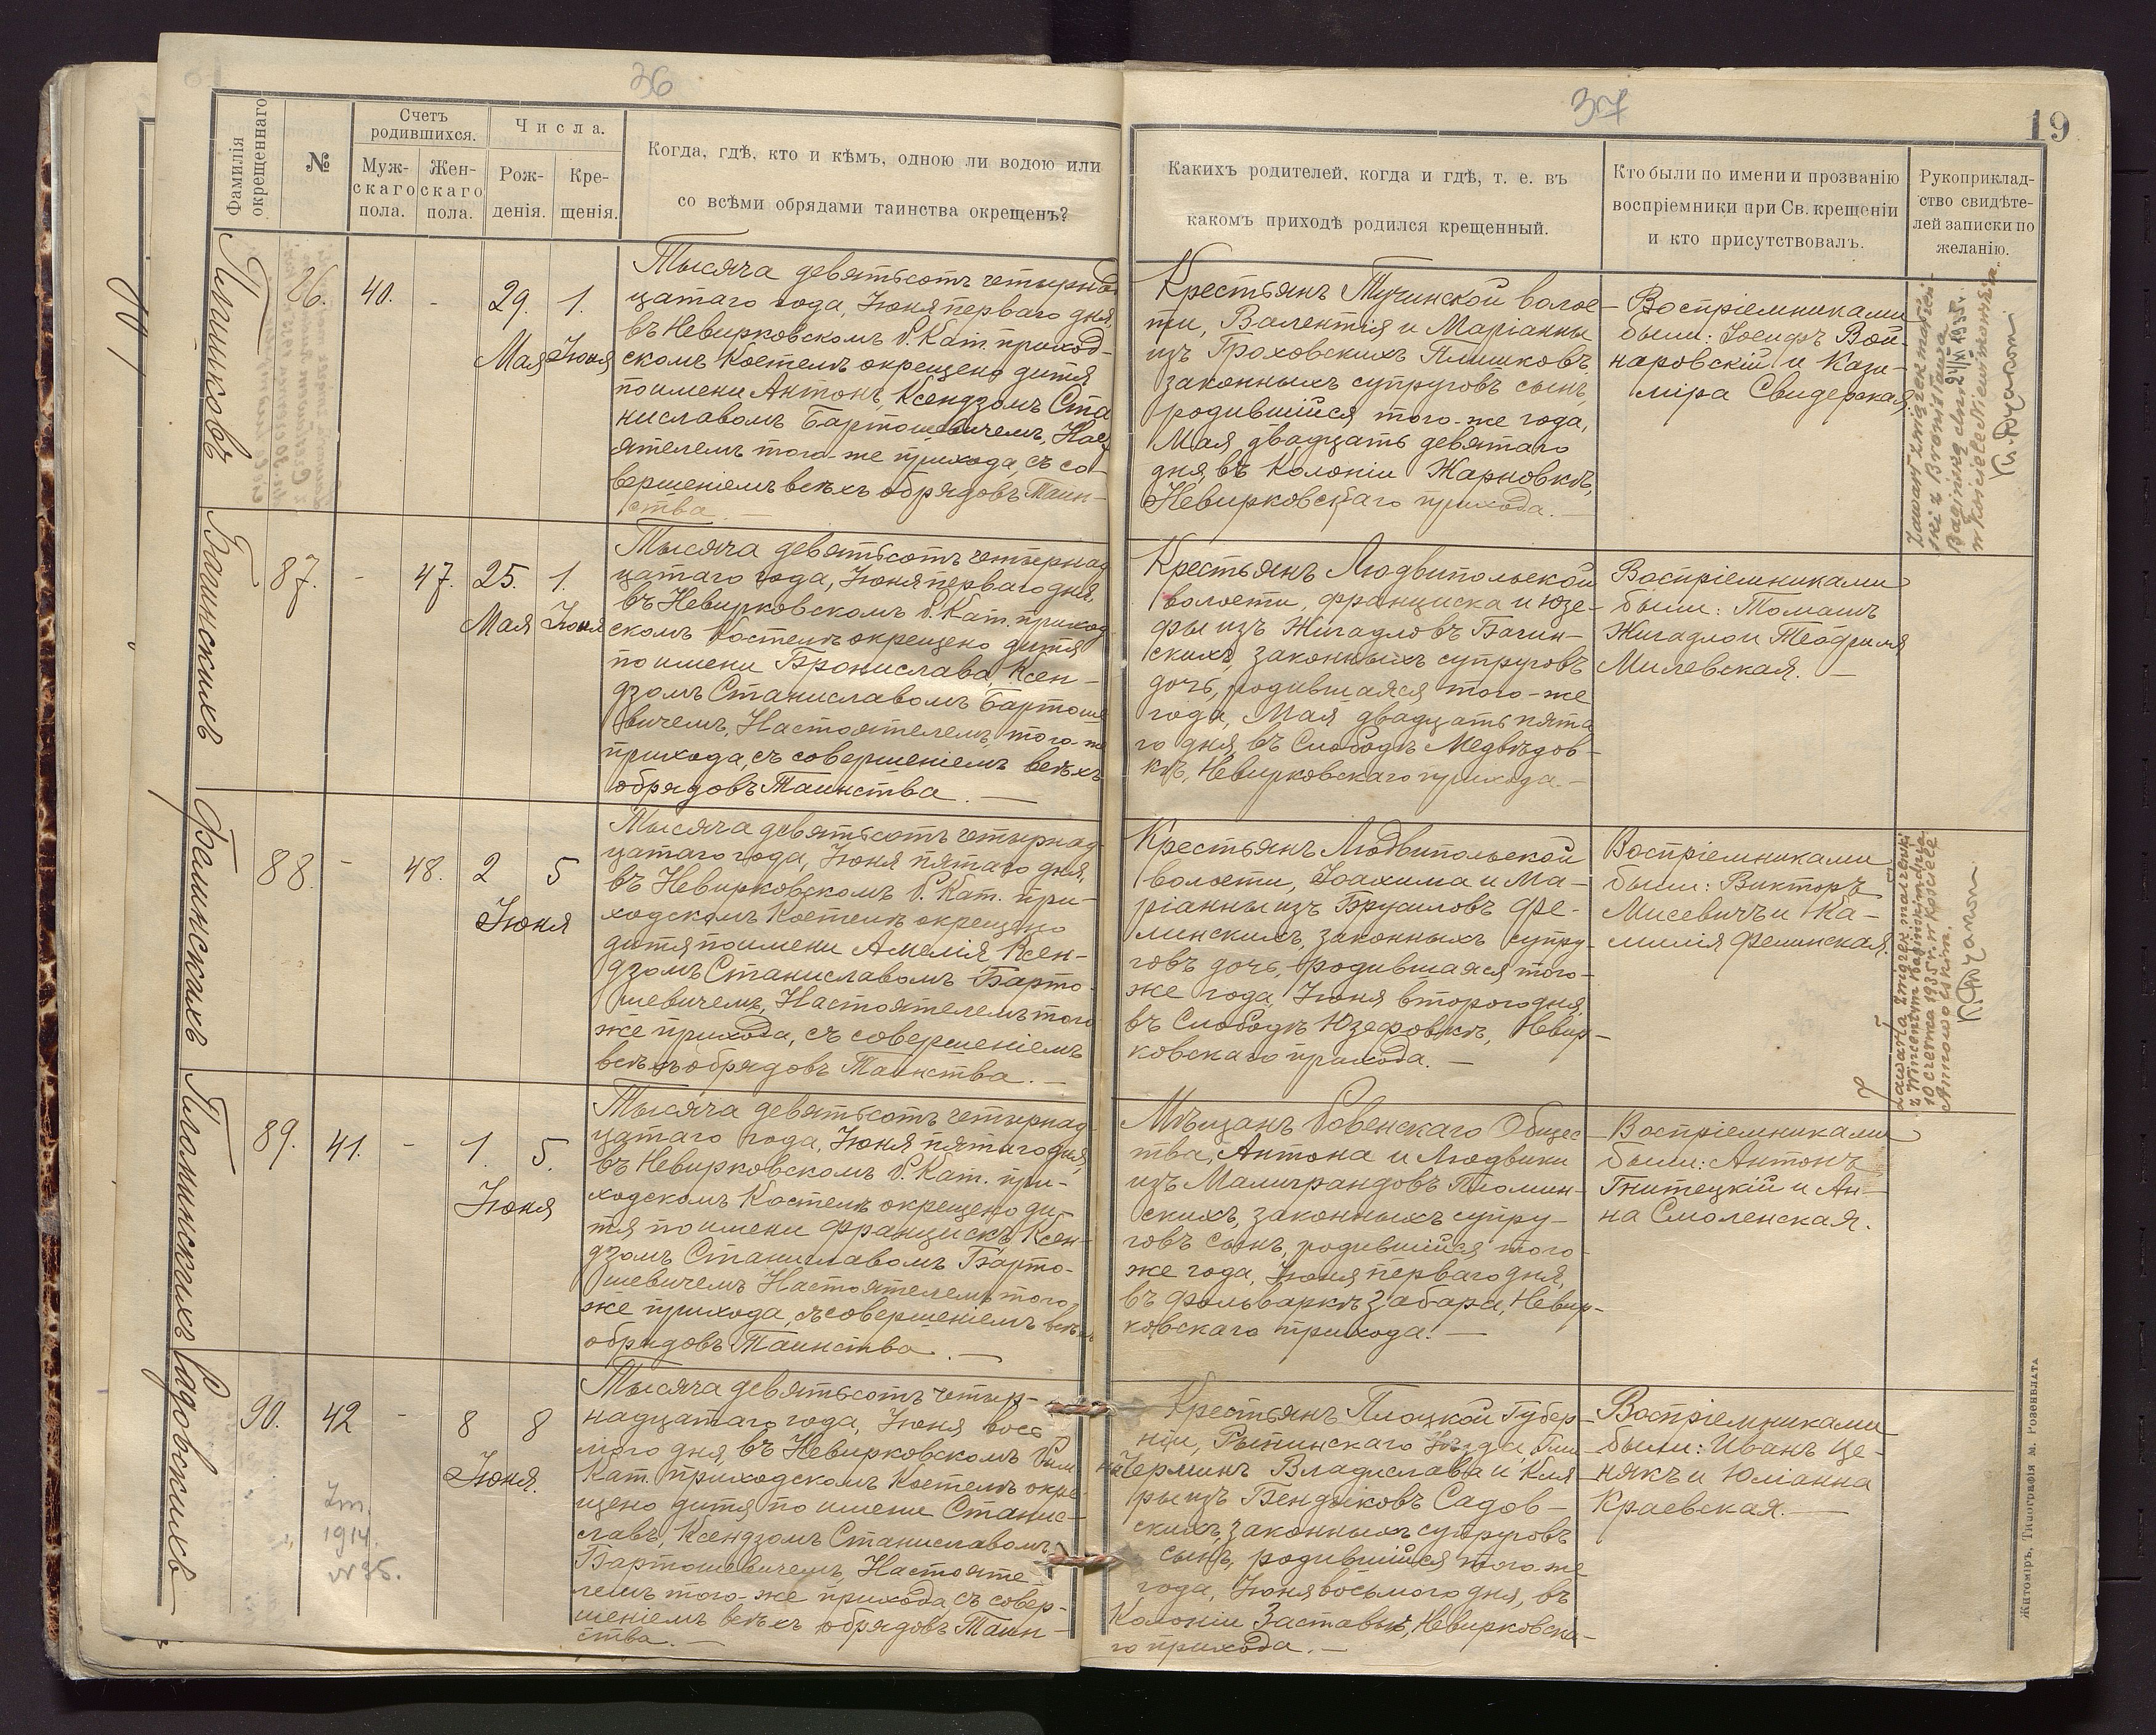 36
Фамилія окрещеннаго
№
Счетъ родившихся.
Муж-
скаго
пола.
Жен-
скаго
пола.
Числа.
Рож-
денія.
Кре-
щенія.
Когда, гдѣ, кто и кѣмъ, одною ли водою или
со всѣми обрядами таинства окрещенъ?
37
19
Каких­ъ родителей, когда и гдѣ, т. е. въ
какомъ приходѣ родился крещенный.
Кто были по имени и прозванію
воспріемники при Св. крещеніи
и кто присутствовалъ.
Рукоприклад-
ство свидѣте-
лей записки по
желанію.
Плишковъ
86.
40.
-
29.
Мая
1.
Іюня
Тысяча девятьсотъ четырнад
цатаго года, Іюня перваго дня,
въ Невирковскомъ Р. Кат. приход-
скомъ Костелѣ окрещено дитя
по имени Антонъ, Ксендзомъ Ста
ниславомъ Бартошевичемъ, Наст
ятелемъ того-же прихода, съ со-
вершеніемъ всѣхъ обрядовъ Таин-
ства.
Крестьянъ Тучинской волос-
ти, Валентія и Маріанны
изъ Гроховскихъ Плишковъ,
законныхъ супруговъ сынъ,
родившійся того-же года,
Мая двадцать девятаго
дня, въ Колоніи Жарновкѣ,
Невирковскаго прихода.
Воспріемниками
были: Іосифъ Вой-
наровскій и Кази-
міра Свидерская.
Zawarł związek małżeń-
ski z Bronisławą
Bagińską dnia 24/XI 1935 r.
w kościele Niewirkowskim.
Багинскихъ
87.
-
47.
25.
Мая
1.
Іюня
Тысяча девятьсотъ четырнад
цатаго года, Іюня перваго дня,
въ Невирковскомъ Р. Кат. приход
скомъ Костелѣ окрещено дитя
по имени Бронислава, Ксен-
дзомъ Станиславомъ Бартоше
вичемъ, Настоятелемъ того-же
прихода, съ совершеніемъ всѣхъ
обрядовъ Таинства.
Крестьянъ Людвипольской
волости, Франциска и Юзе-
фы изъ Жигадловъ Багин-
скихъ, законныхъ супруговъ
дочь, родившаяся того-же
года, Мая двадцать пята
го дня, въ Слободѣ Медвѣдов-
кѣ, Невирковскаго прихода.
Воспріемниками
были: Томашъ
Жигадло и Теофиля
Милевская.
Фелинскихъ
88.
-
48.
2
5
Іюня
Тысяча девятьсотъ четырнад
цатаго года, Іюня пятаго дня,
въ Невирковскомъ Р. Кат. при-
ходскомъ Костелѣ окрещено
дитя по имени Амелія Ксен-
дзомъ Станиславомъ Барто-
шевичемъ, Настоятелемъ того
же прихода, съ совершеніемъ
всѣхъ обрядовъ Таинства.
Крестьянъ Людвипольской
волости, Іоахима и Ма-
ріанны изъ Брусиловъ Фе-
линскихъ, законныхъ супру-
говъ дочь, родившаяся того-
же года, Іюня второго дня,
въ Слободѣ Юзефовкѣ, Невир-
ковскаго прихода.
Воспріемниками
были: Викторъ
Мисевичъ и Ка-
милія Фелинская.
Zawarła związek małżeński
z Wincentym
10 czerwca 1935 r. w kościele
Пломинскихъ
89.
41.
-
1.
5.
Іюня
Тысяча девятьсотъ четырнад-
цатаго года, Іюня пятаго дня,
въ Невирковскомъ Р. Кат. при-
ходскомъ Костелѣ окрещено ди-
тя по имени Францискъ Ксен-
дзомъ Станиславомъ Барто-
шевичемъ Настоятелемъ того-
же прихода, съ совершеніемъ всѣхъ
обрядовъ Таинства.
Мѣщанъ Ровенскаго Общес-
тва, Антона и Людвики
изъ Малиграндовъ Пломин-
скихъ, законныхъ супру-
говъ сынъ, родившійся того-
же года, Іюня перваго дня,
въ фольваркѣ Забара, Невир-
ковскаго прихода.
Воспріемниками
были: Антонъ
Гнитецкій и Ан-
на Смоленская.
Садовскихъ
90.
42
-
8
8
Іюня.
Zm.
1914.
№ 35.
Тысяча девятьсотъ четыр-
надцатаго года, Іюня вось-
мого дня, въ Невирковскомъ Рим
Кат. приходскомъ Костелѣ окре-
щено дитя по имени Станис-
лавъ, Ксендзомъ Станиславомъ
Бартошевичемъ, Настояте-
лемъ того-же прихода, съ совер-
шеніемъ всѣхъ обрядовъ Таин-
ства.
Крестьянъ Плоцкой Губер-
ніи, Рыпинскаго Уѣзда, Гми-
ны Черминъ Владислава и Кля
ры изъ Бендыковъ Садов-
скихъ, законныхъ супруговъ
сынъ, родившійся того-же
года, Іюня восьмого дня, въ
Колоніи Заставье, Невирковска-
го прихода.
Воспріемниками
были: Иванъ Це-
някъ и Юліанна
Краевская.
Житоміръ, Типографія М. Розенблата